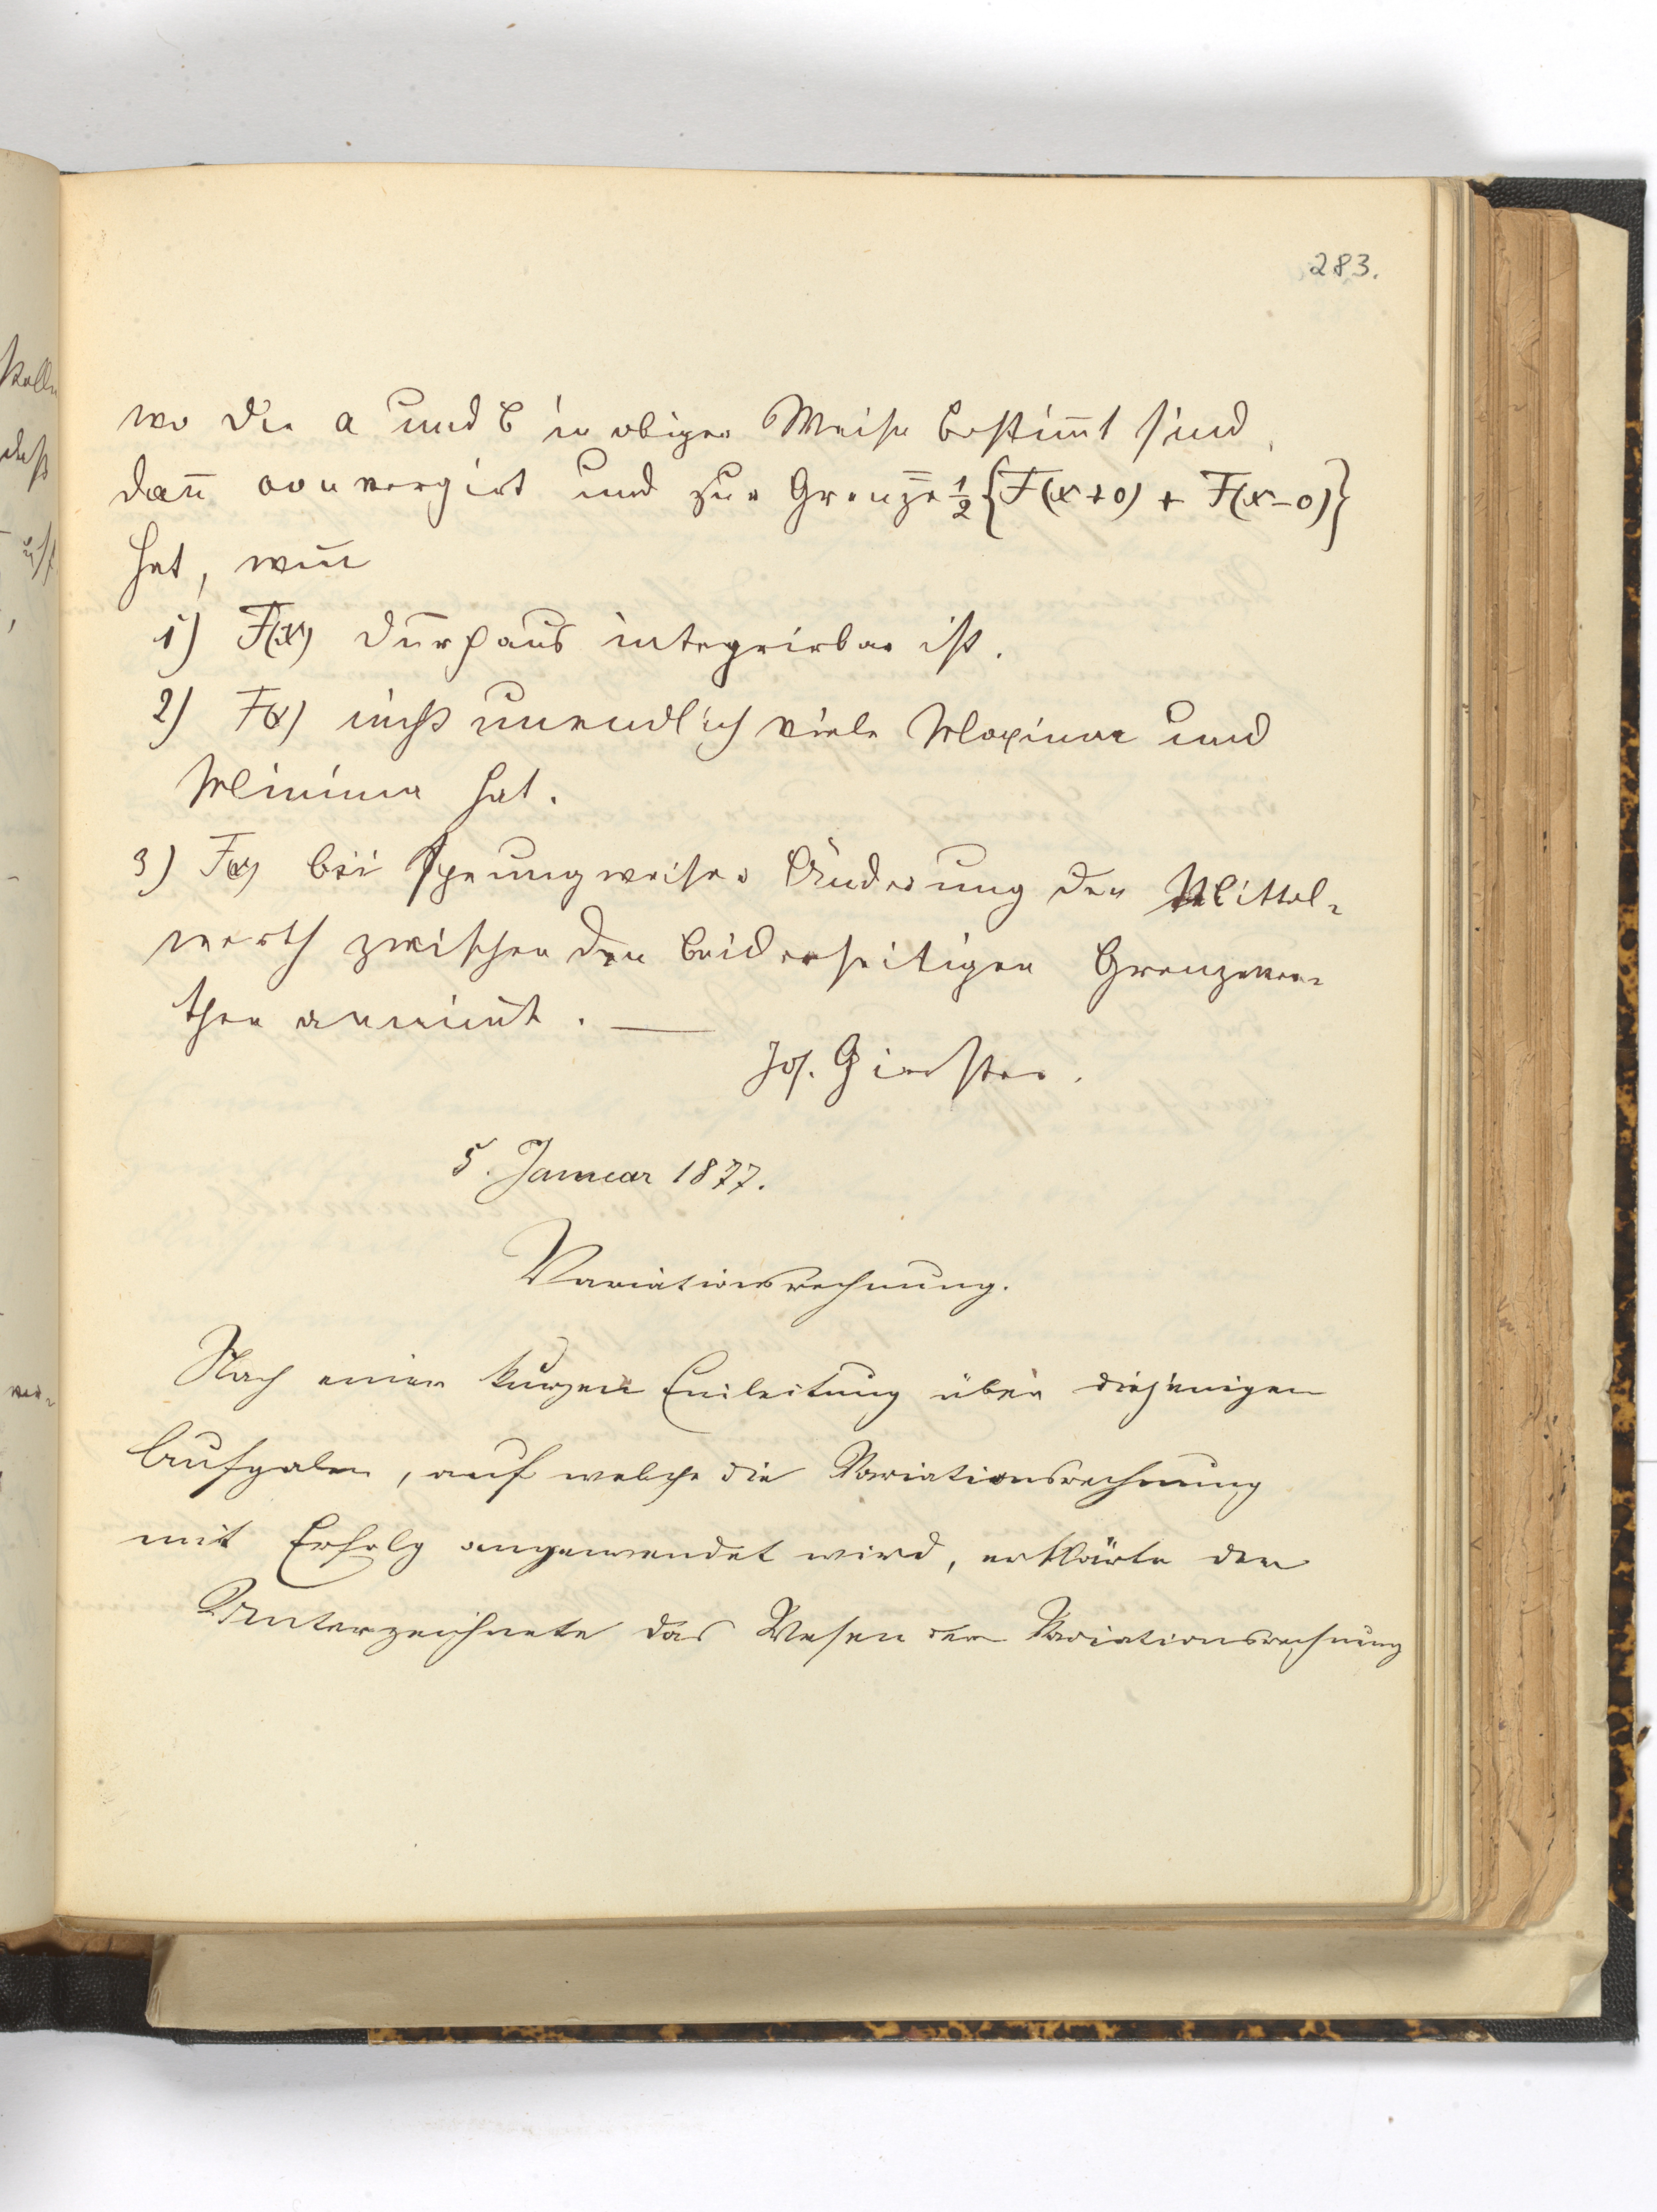 283.
wo die a und b in obiger Weise bestim̅t sind,
dan̅ convergirt und zur Grenze ½{F(x+0) + F(x−0)}
hat, wen̅
1) F(x) durchaus integrirbar ist.
2) F(x) nicht unendlich viele Maxima und
Minima hat.
3) F(x) bei sprungweiser Änderung den Mittel=
werth zwischen den beiderseitigen Grenzwer=
then annim̅t. —
Jos. Gierster.
5. Januar 1877.
Variationsrechnung.
Nach einer kurzen Einleitung über diejenigen
Aufgaben, auf welche die Variationsrechnung
mit Erfolg angewendet wird, erklärte der
Unterzeichnete das Wesen der Variationsrechnung